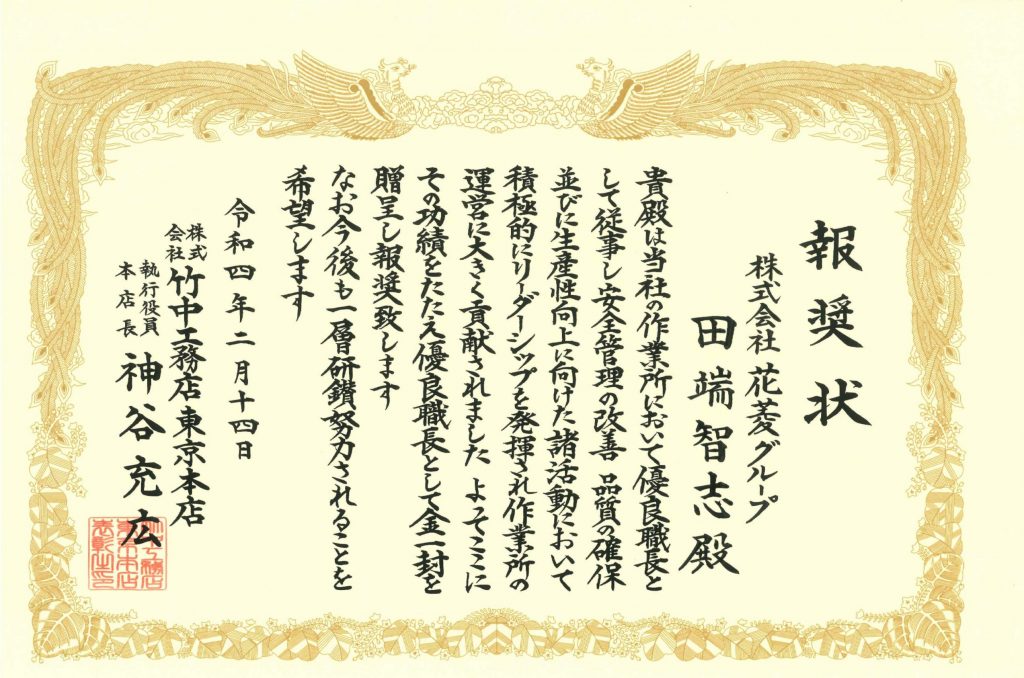 報奨状
株式会社 花菱グループ
田端智志殿
貴殿は当社の作業所において優良職長と
して従事し安全管理の改善 品質の確保
並びに生産性向上に向けた諸活動において
積極的にリーダーシップを発揮され作業所の
運営に大きく貢献されました よってここに
その功績をたたえ優良職長として金一封を
贈呈し報奨致します
なお今後も一層研鑚努力されることを
希望します
令和四年二月十四日
株式会社 竹中工務店 東京本店
執行役員
本店長 神谷充広